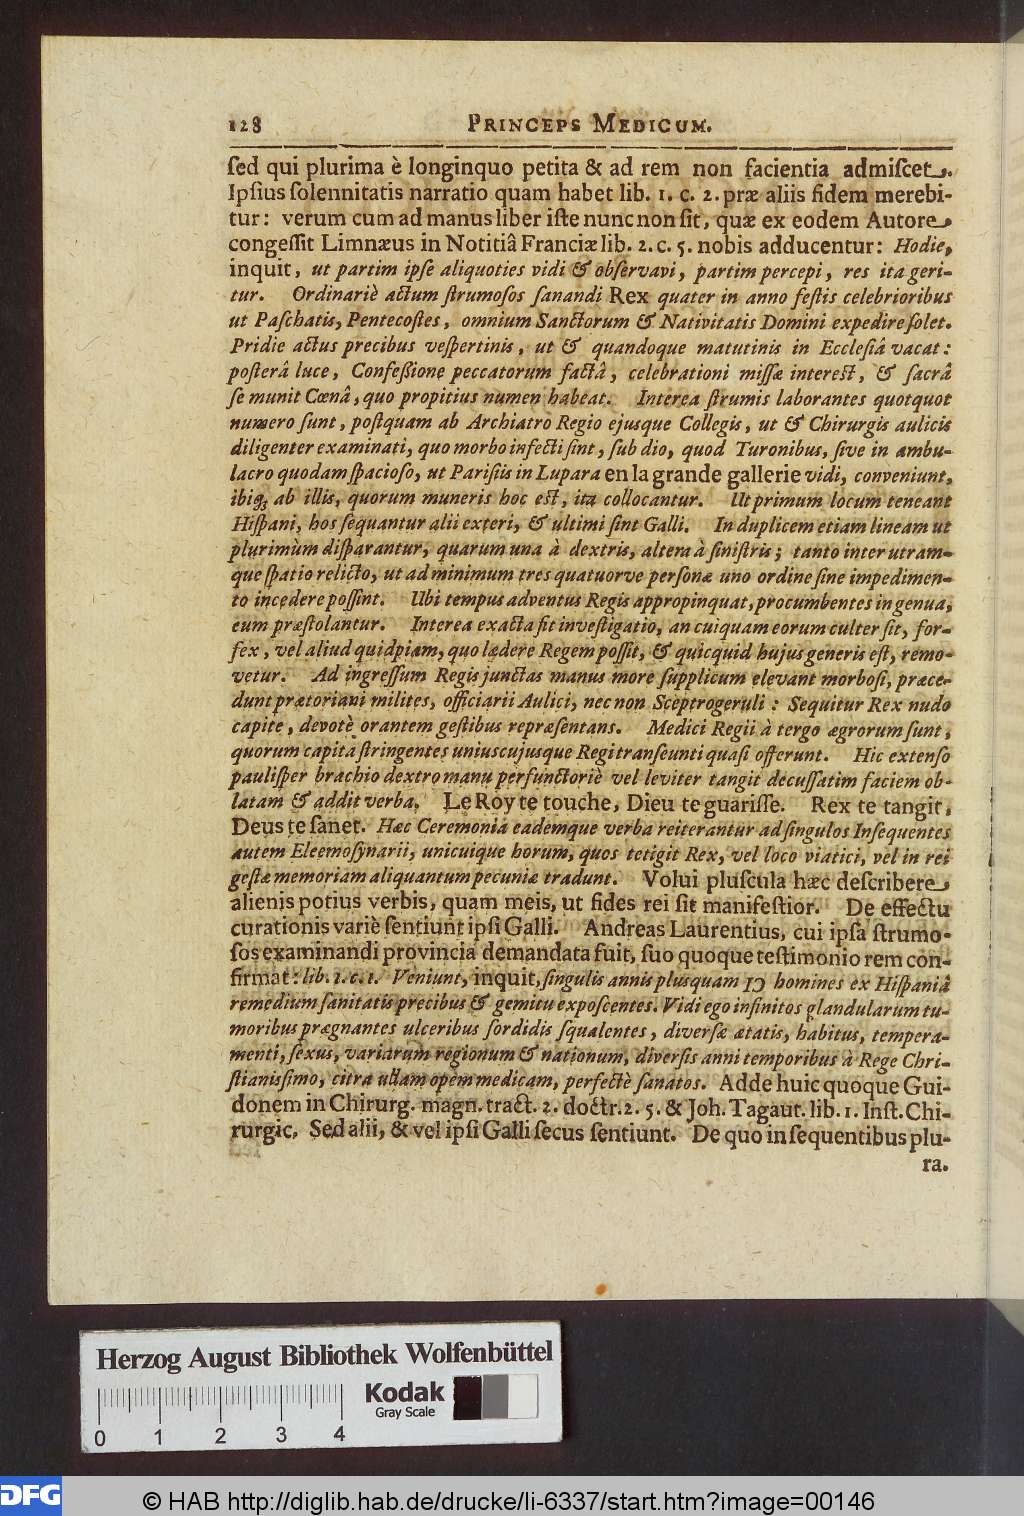 128 PRINCEPS MEDICUM.
ſed qui plurima è longinquo petita & ad rem non facientia admiſcet.
Ipſius ſolennitatis narratio quam habet lib. 1. c. 2. præ aliis fidem merebi-
tur: verum cum ad manus liber iſte nunc non ſit, quæ ex eodem Autore
congeſſit Limnæus in Notitiâ Franciæ lib. 2. c. 5. nobis adducentur: Hodie,
inquit, ut partim ipſe aliquoties vidi & obſervavi, partim percepi, res ita geri-
tur. Ordinariè actum ſtrumoſos ſanandi Rex quater in anno feſtis celebrioribus
ut Paſchatis, Pentecoſtes, omnium Sanctorum & Nativitatis Domini expedire ſolet.
Pridie actus precibus veſpertinis, ut & quandoque matutinis in Eccleſiâ vacat:
poſterâ luce, Confeßione peccatorum factâ, celebrationi miſſæ intereſt, & ſacrâ
ſe munit Cœnâ, quo propitius numen habeat. Interea ſtrumis laborantes quotquot
numero ſunt, poſtquam ab Archiatro Regio ejusque Collegis, ut & Chirurgis aulicis
diligenter examinati, quo morbo infecti ſint, ſub dio, quod Turonibus, ſive in ambu-
lacro quodam ſpacioſo, ut Pariſiis in Lupara en la grande gallerie vidi, conveniunt,
ibiq; ab illis, quorum muneris hoc eſt, ita collocantur. Ut primum locum teneant
Hiſpani, hos ſequantur alii exteri, & ultimi ſint Galli. In duplicem etiam lineam ut
plurimùm diſparantur, quarum una à dextris, altera à ſiniſtris; tanto inter utram-
que ſpatio relicto, ut ad minimum tres quatuorve perſonæ uno ordine ſine impedimen-
to incedere poſſint. Ubi tempus adventus Regis appropinquat, procumbentes in genua,
eum præſtolantur. Interea exacta fit inveſtigatio, an cuiquam eorum culter ſit, for-
fex, vel aliud quidpiam, quo lædere Regem poſſit, & quicquid hujus generis eſt, remo-
vetur. Ad ingreſſum Regis junctas manus more ſupplicum elevant morboſi, præce-
dunt prætoriani milites, officiarii Aulici, nec non Sceptrogeruli: Sequitur Rex nudo
capite, devotè orantem geſtibus repræſentans. Medici Regii à tergo ægrorum ſunt,
quorum capita ſtringentes uniuscujusque Regi tranſeunti quaſi offerunt. Hic extenſo
pauliſper brachio dextro manu perfunctoriè vel leviter tangit decuſſatim faciem ob-
latam & addit verba. Le Roy te touche, Dieu te guariſſe. Rex te tangit,
Deus te ſanet. Hæc Ceremonia eademque verba reiterantur ad ſingulos Inſequentes
autem Eleemoſynarii, unicuique horum, quos tetigit Rex, vel loco viatici, vel in rei
geſtæ memoriam aliquantum pecuniæ tradunt. Volui pluſcula hæc deſcribere
alienis potius verbis, quam meis, ut fides rei ſit manifeſtior. De effectu
curationis variè ſentiunt ipſi Galli. Andreas Laurentius, cui ipſa ſtrumo-
ſos examinandi provincia demandata fuit, ſuo quoque teſtimonio rem con-
firmat: lib. 1. c. 1. Veniunt, inquit, ſingulis annis plusquam IↃ homines ex Hiſpaniâ
remedium ſanitatis precibus & gemitu expoſcentes. Vidi ego infinitos glandularum tu-
moribus prægnantes ulceribus ſordidis ſqualentes, diverſæ ætatis, habitus, tempera-
menti, ſexus, variarum regionum & nationum, diverſis anni temporibus à Rege Chri-
ſtianiſſimo, citra ullam opem medicam, perfectè ſanatos. Adde huic quoque Gui-
donem in Chirurg. magn. tract. 2. doctr. 2. 5. & Joh. Tagaut. lib. 1. Inſt. Chi-
rurgic. Sed alii, & vel ipſi Galli ſecus ſentiunt. De quo in ſequentibus plu-
ra.
Herzog August Bibliothek Wolfenbüttel
Kodak
Gray Scale
0 1 2 3 4
DFG © HAB http://diglib.hab.de/drucke/li-6337/start.htm?image=00146